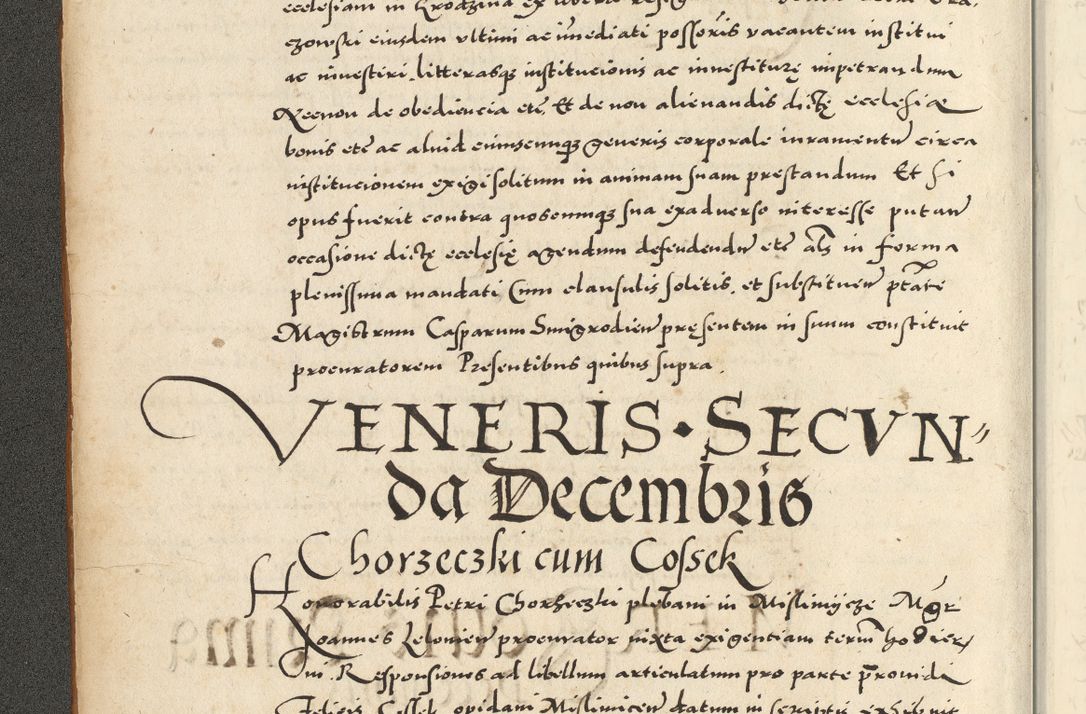 ecclesiam in Krodzina ex libera resig
czowski eiusdem vltimi ac im̄ediati possoris vacantem institui
ac investiri litterasqʒ institucionis ac investiturę impetrandum
Necnon de obediencia etc̄. Et de non alienandis dictę ecclesiæ
bonis etc̄ ac aliud cuiuscunqʒ generis corporale iuramentū circa
institucionem exigi solitum in animam suam prestandum Et si
opus fuerit contra quoscunqʒ sua exadverso interesse putan̄
occasione dictę ecclesię agendum defendendū etc̄ al̄s in forma
plenissima mandati Cum clausulis solitis. et substituen̄ ptāte
Magistrum Casparum Smigrodien̄ pręsentem in suum constituit
procuratorem Presentibus quibus supra.
VENERIS · SECVN〃
da Decembris
Chorzeczki cum Cossek
Honorabilis Petri Chorzeczki plebani in Mislimijcze Mgr̄
Joannes Lelovien̄ procurator iuxta exigentiam term̄ hodier,
ni Responsiones ad libellum articulatum pro parte p̄rovidi
Felicis Cossek opidani Mislimicen̄ datum in scriptis exhibuit